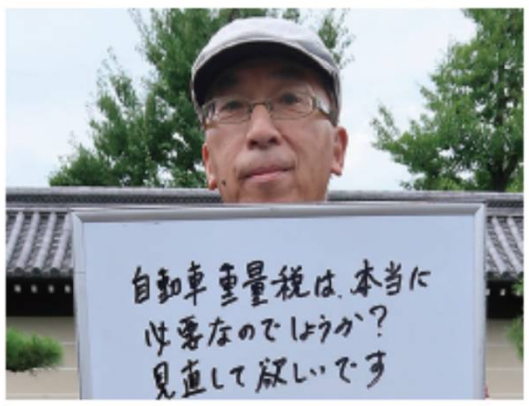 自動車重量税は、本当に
必要なのでしょうか?
見直して欲しいです